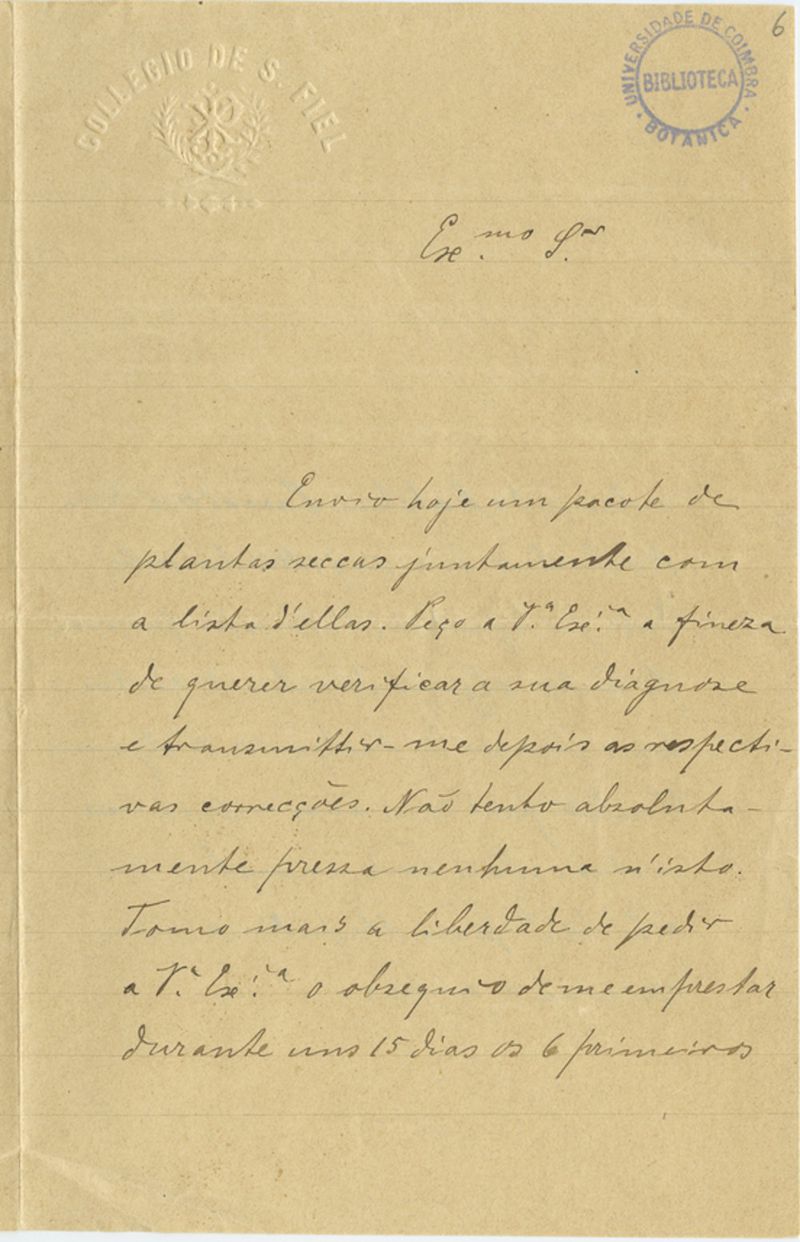 6
COLLEGIO DE S. FIEL
UNIVERSIDADE DE COIMBRA
BIBLIOTECA
BOTANICA
Exe.mo S.or
Envio hoje um pacote de
plantas seccas juntamente com
a lista d'ellas. Peço a V.a Exc.a a fineza
de querer verificar a sua diagnose
e transmittir-me depois as respecti-
vas correcções. Não tenho absoluta-
mente pressa nenhuma n'isto.
Tomo mais a liberdade de pedir
a V.a Exc.a o obsequio de me emprestar
durante uns 15 dias os 6 primeiros